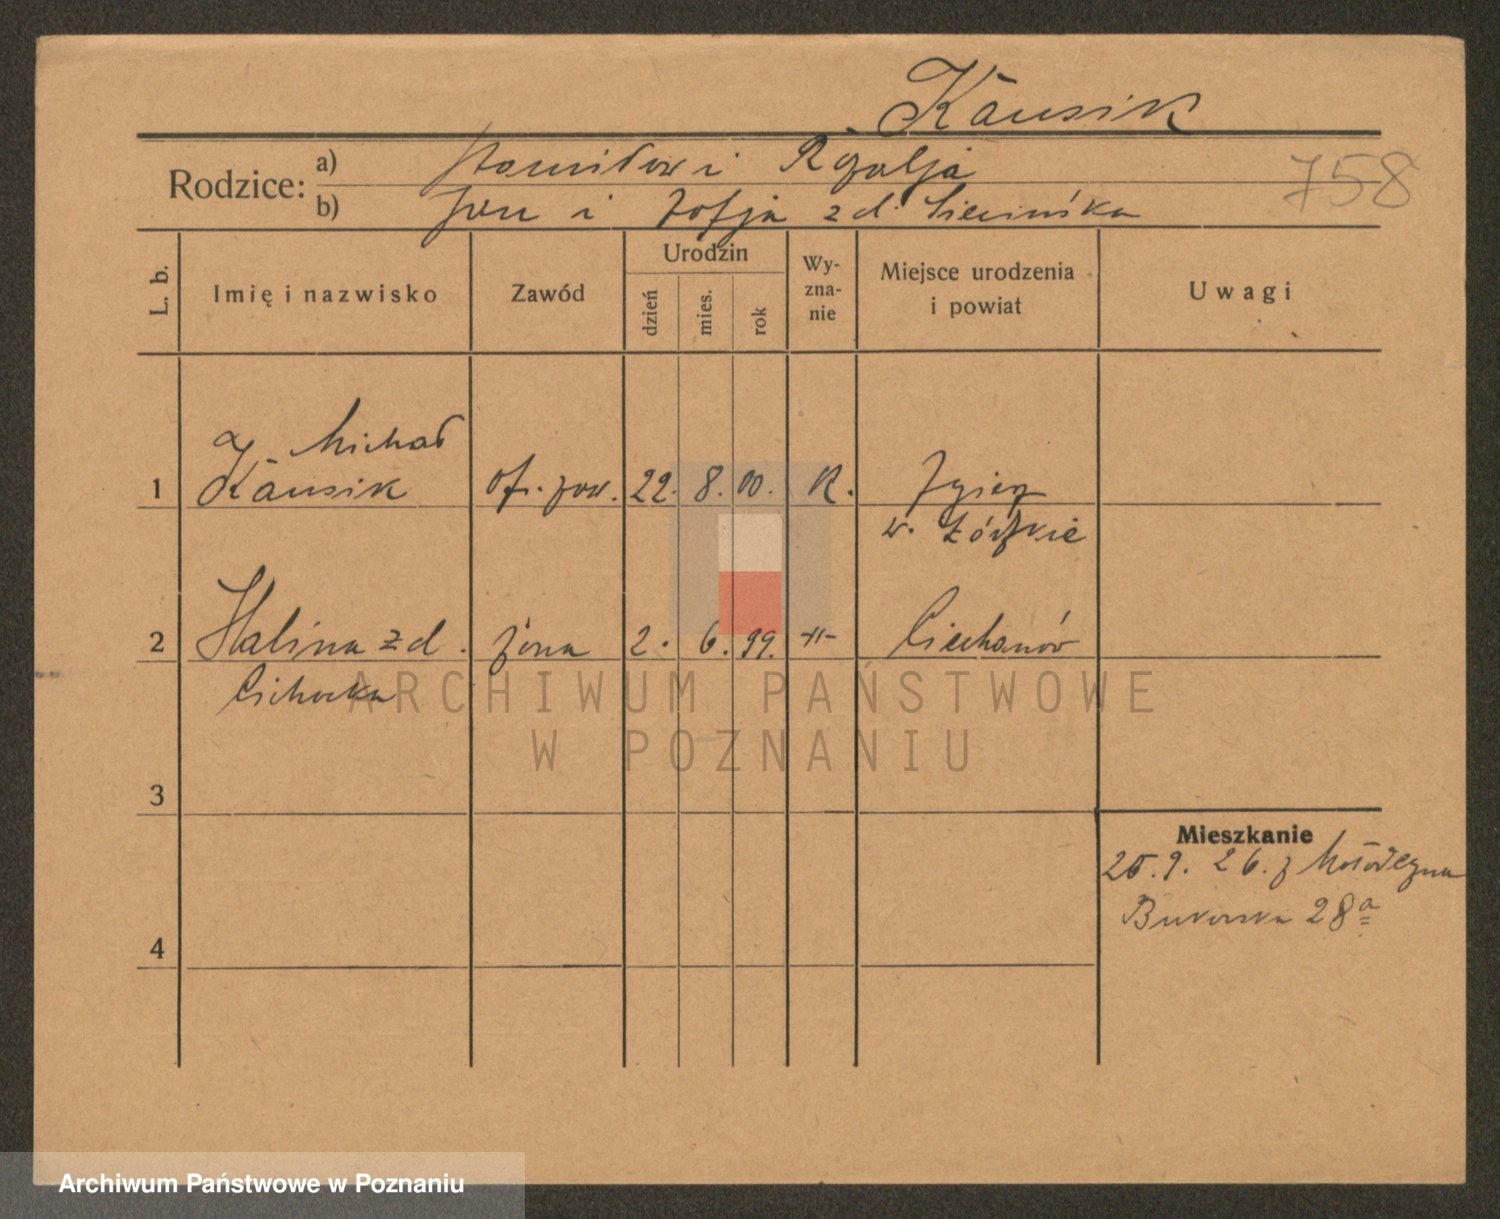 Kausik
Rodzice:
a) Stanisław i Rozalja
b) Jan i Zofja z d. Siecińska
758
L. b.
Imię i nazwisko
Zawód
Urodzin
dzień
mies.
rok
Wy-
zna-
nie
Miejsce urodzenia
i powiat
Uwagi
Michał
1 Kausik of. zaw. 22. 8. 00. R. Zgierz
w. Łódzkie
2 Halina z d. żona 2. 6. 99. -"- Ciechanów
Cichocka
3
Mieszkanie
25. 9. 26. z Mołodeczna
Bukowska 28a
4
ARCHIWUM PAŃSTWOWE
W POZNANIU
Archiwum Państwowe w Poznaniu